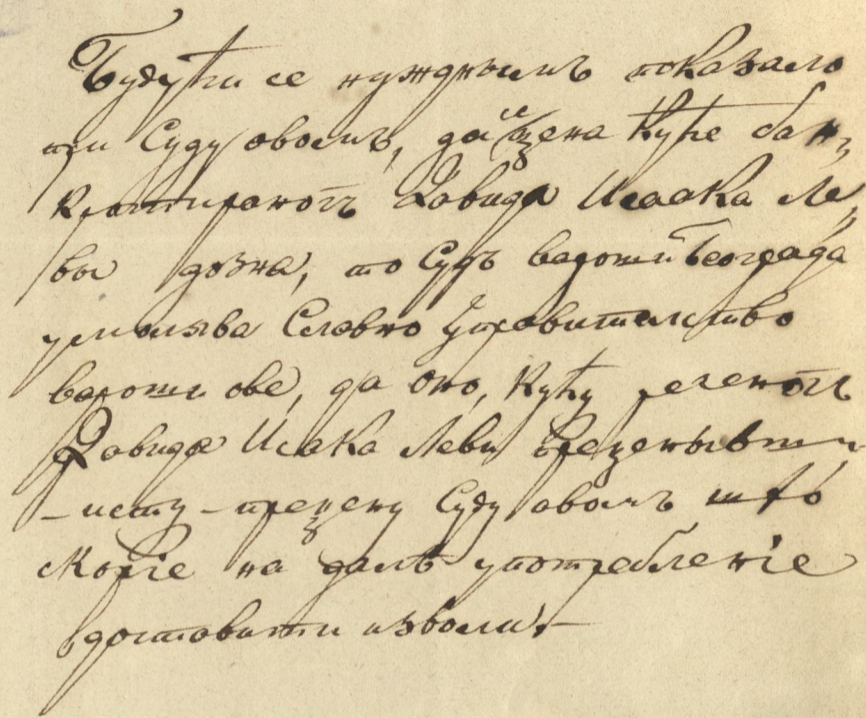 Будући се нужднымъ показало
при Суду овомъ, да се цена Куће бан-
кротиранога Давида Исаака Ле-
ви дозна, то Судъ вароши Београда
умолява Славно Управителство
вароши ове, да оно, Кућу реченогъ
Давида Исака Леви
-исту-процену Суду овомъ што
скоріе на далѣ употребленіе
доставити изволи.-